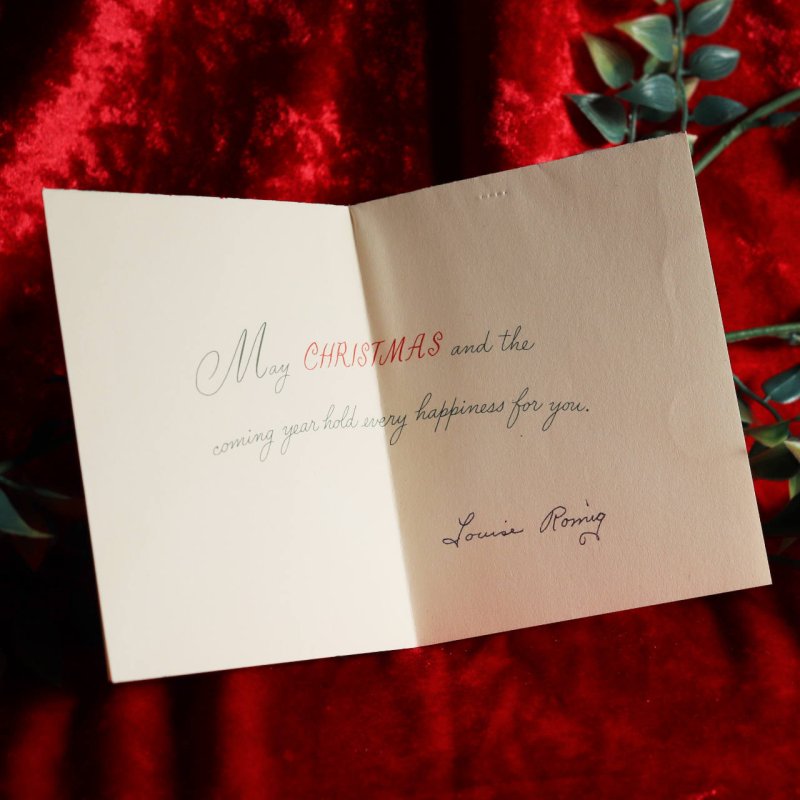 May CHRISTMAS and the
coming year hold every happiness for you.
Louise Romig